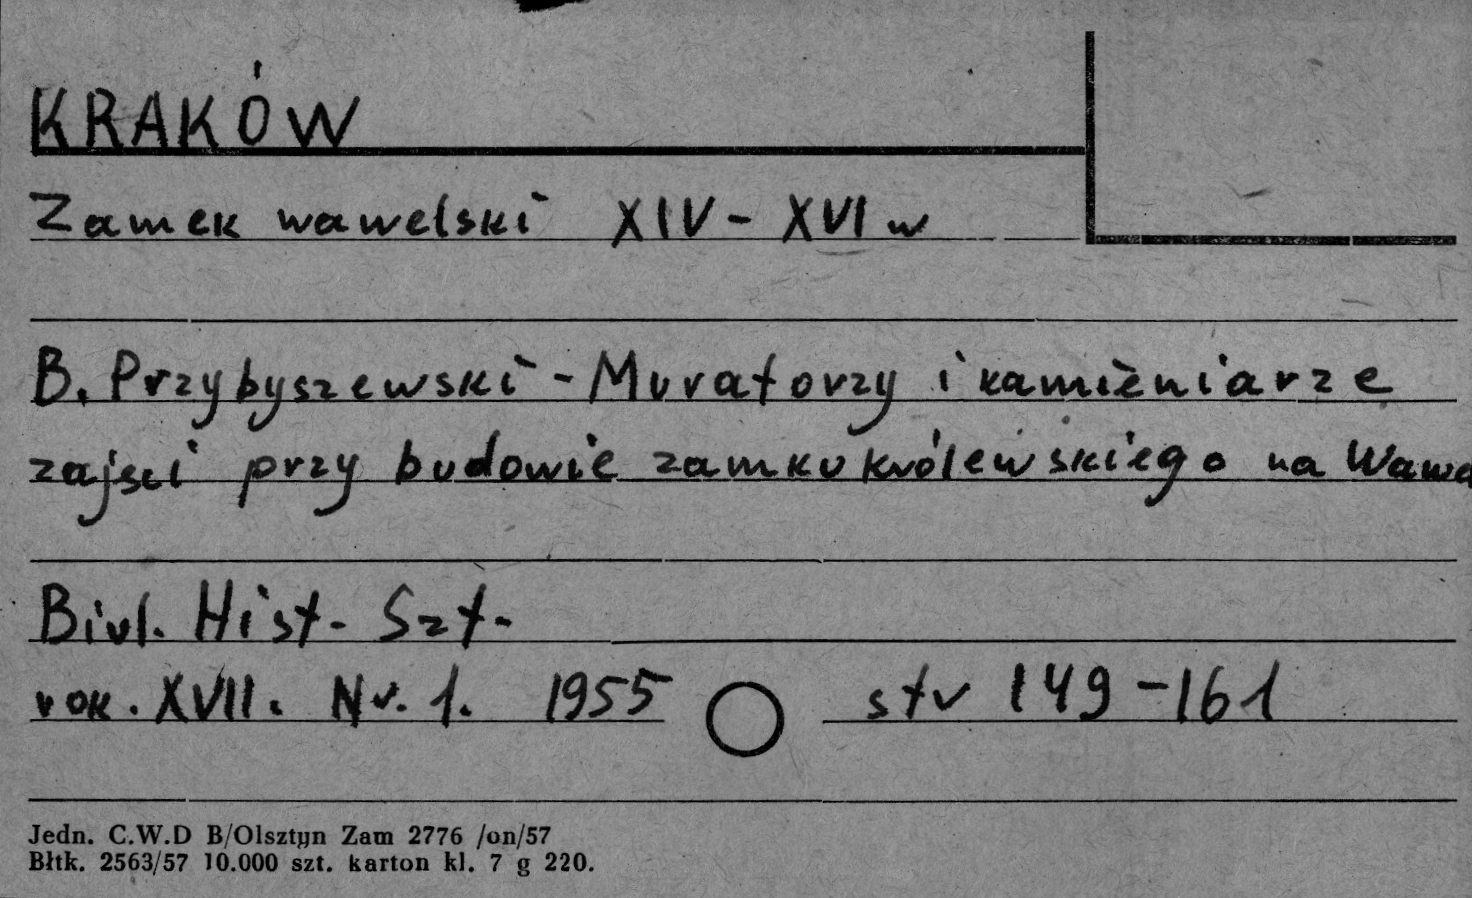 KRAKÓW
Zamek wawelski XIV - XVI w
B. Przybyszewski - Muratorzy i kamieniarze
zajęci przy budowie zamku królewskiego na Wawe
Biul. Hist. Szt.
rok. XVII. Nr. 1. 1955 str 149-161
Jedn. C.W.D B/Olsztyn Zam 2776 /on/57
Błtk. 2563/57 10.000 szt. karton kl. 7 g 220.